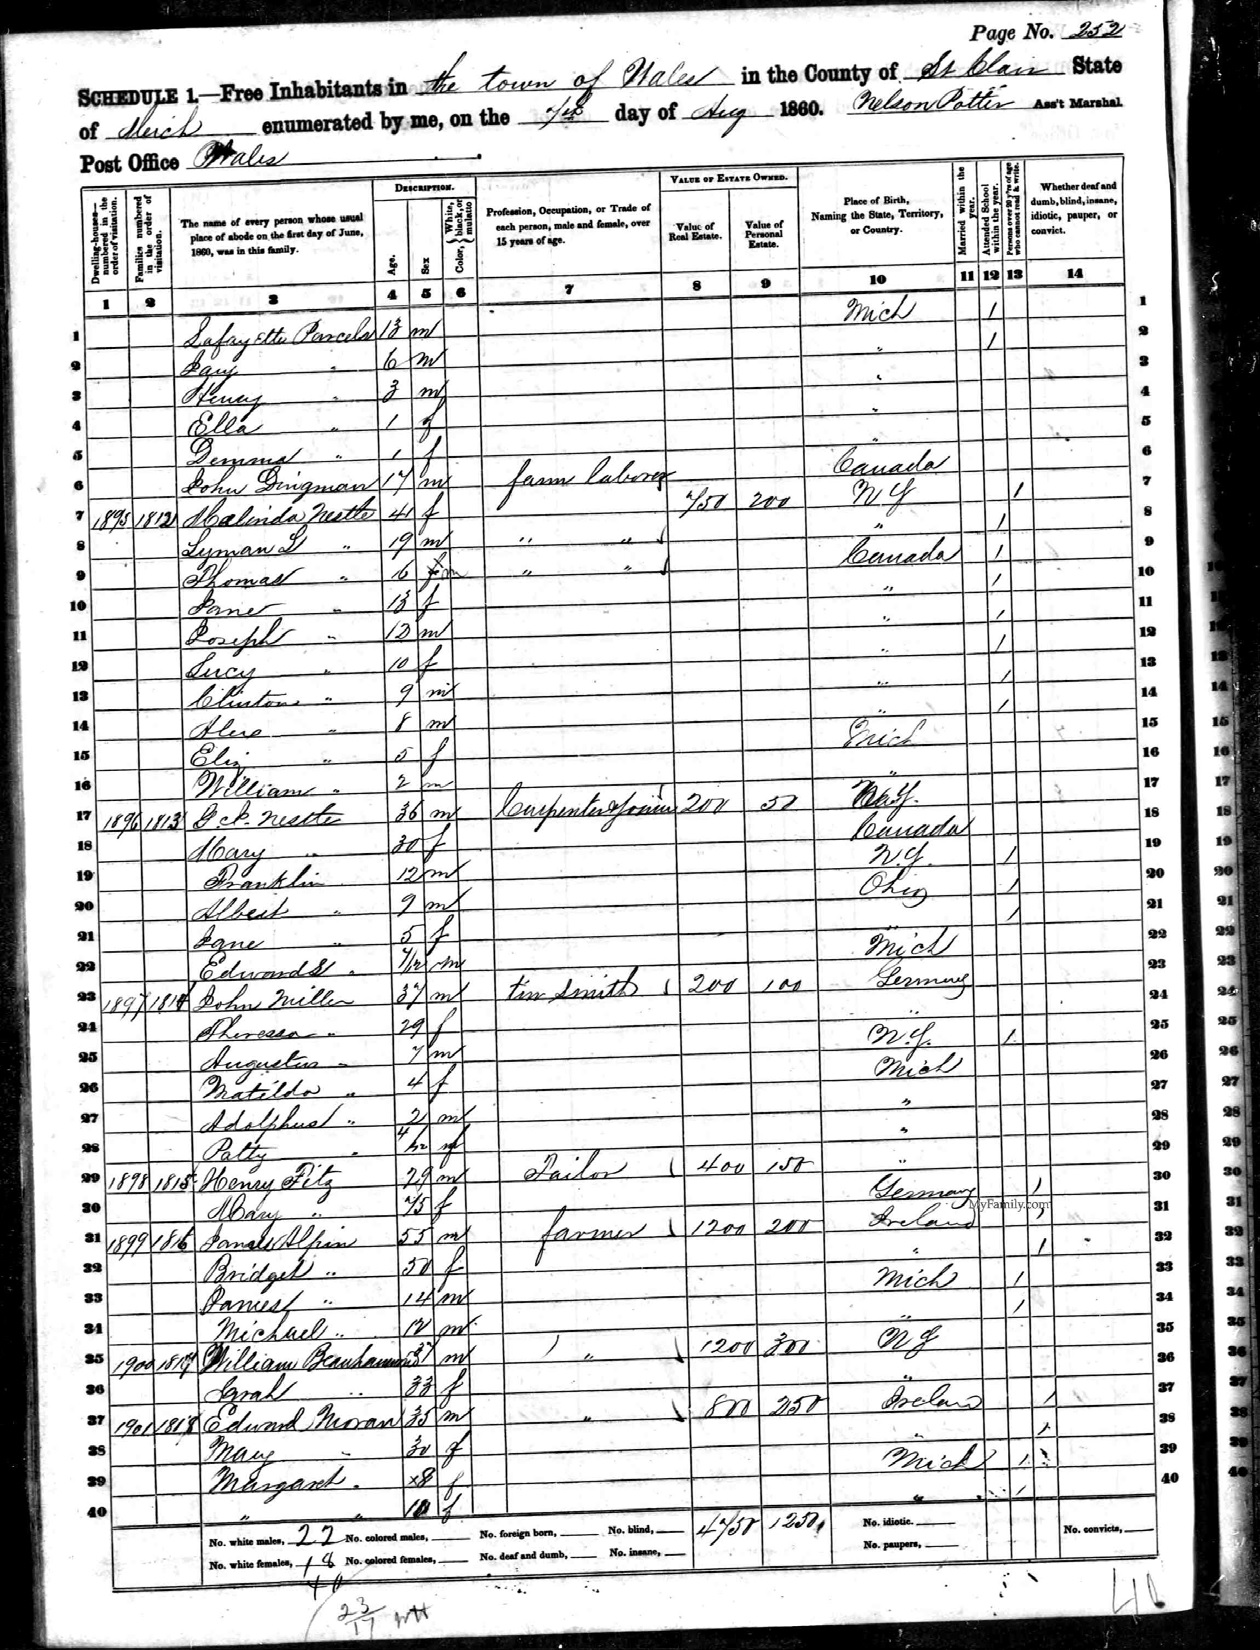 Page No. 252
SCHEDULE 1.—Free Inhabitants in the town of Wales in the County of St Clair State
of Mich enumerated by me, on the 7th day of Aug 1860. Nelson Potter Ass't Marshal
Post Office Wales
DESCRIPTION. VALUE OF ESTATE OWNED.
Dwelling-houses—numbered in the order of visitation. Families numbered in the order of visitation. The name of every person whose usual place of abode on the first day of June, 1860, was in this family. Age. Sex Color, White, black, or mulatto Profession, Occupation, or Trade of each person, male and female, over 15 years of age. Value of Real Estate. Value of Personal Estate. Place of Birth, Naming the State, Territory, or Country. Married within the year. Attended School within the year. Persons over 20 y'rs of age who cannot read & write. Whether deaf and dumb, blind, insane, idiotic, pauper, or convict.
1 2 3 4 5 6 7 8 9 10 11 12 13 14
1 Lafayette Parcels 13 m Mich 1 1
2 " 6 m " 1 2
3 Henry " 3 m " 3
4 Ella " 1 f " 4
5 " 1 f " 5
6 John Dingman 17 m farm laborer Canada 6
7 1895 1812 Malinda Nestle 41 f 750 200 N Y 1 7
8 Lyman L " 19 m " " " 1 8
9 Thomas " 6 m " " Canada 1 9
10 Jane " 13 f " 1 10
11 Joseph " 12 m " 1 11
12 Lucy " 10 f " 1 12
13 Clinton " 9 m " 1 13
14 " 8 m " 1 14
15 Eliz " 5 f Mich 15
16 William " 2 m " 16
17 1896 1813 Nestle 36 m Carpenter & Joiner 200 50 N.Y. 17
18 Mary " 30 f Canada 18
19 Franklin 12 m N.Y. 1 19
20 Albert " 9 m Ohio 1 20
21 Jane " 5 f " 1 21
22 Edward S " 7/12 m Mich 22
23 1897 1814 John Miller 37 m tin smith 200 100 Germany 23
24 Theressa " 29 f " 24
25 Augustus " 7 m N.Y. 1 25
26 Matilda " 4 f Mich 26
27 Adolphus " 2 m " 27
28 Patty " 4/12 f " 28
29 1898 1815 Henry Fitz 29 m Tailor 400 150 " 29
30 Mary " 75 f Germany 1 30
31 1899 1816 James Alpin 55 m farmer 1200 200 Ireland 1 31
32 Bridget " 50 f " 1 32
33 James " 14 m Mich 1 33
34 Michael " 12 m " 1 34
35 1900 1817 William 37 m " 1200 300 N Y 35
36 Sarah " 33 f " 36
37 1901 1818 Edward Moran 35 m " 800 250 Ireland 1 37
38 Mary " 30 f " 1 38
39 Margaret " 8 f Mich 1 39
40 " " 10 f " 1 40
MyFamily.com
No. white males, 22 No. colored males, No. foreign born, No. blind, 4750 1250 No. idiotic. No. convicts,
No. white females, 18 No. colored females, No. deaf and dumb, No. insane, No. paupers,
40
23
17